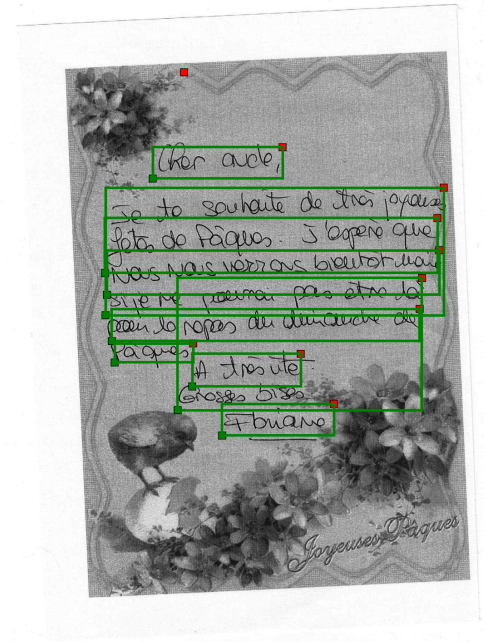 Cher oncle,
Je te souhaite de très joyeuses
fêtes de Pâques. J'espère que
nous nous verrons bientôt mais
si je ne pourrai pas être là
pour le repas du dimanche de
Pâques
A très vite.
Grosses bises
Joyeuses Pâques